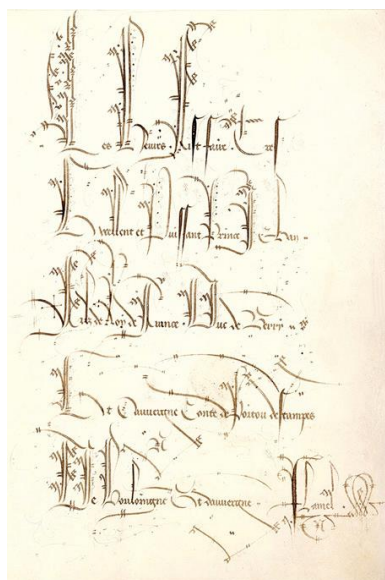 Ces Heures Fist faire Tres
Excellent et Puissant Prince Jehan
Filz de Roy de France . Duc de Berry
Et Dauvergne Conte de Poitou destampes
De Bouloingne Et dauvergne . Flamel .